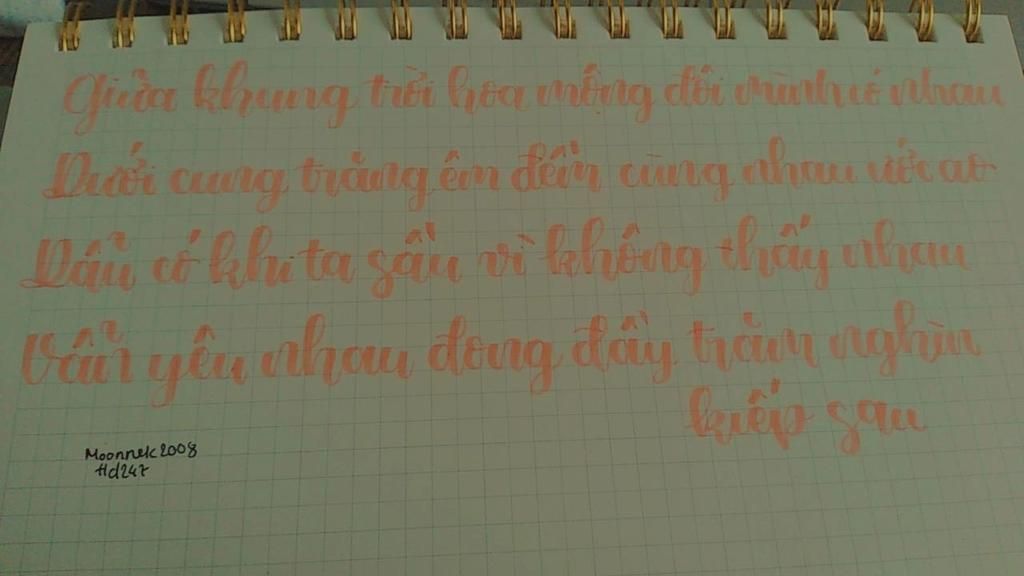 Giữa khung trời hoa mộng đôi mình có nhau
Dưới cung trăng êm đềm cùng nhau ước ao
Dẫu có khi ta sầu vì không thấy nhau
Vẫn yêu nhau đong đầy trăm nghìn
kiếp sau
Moonnek2008
Hd247